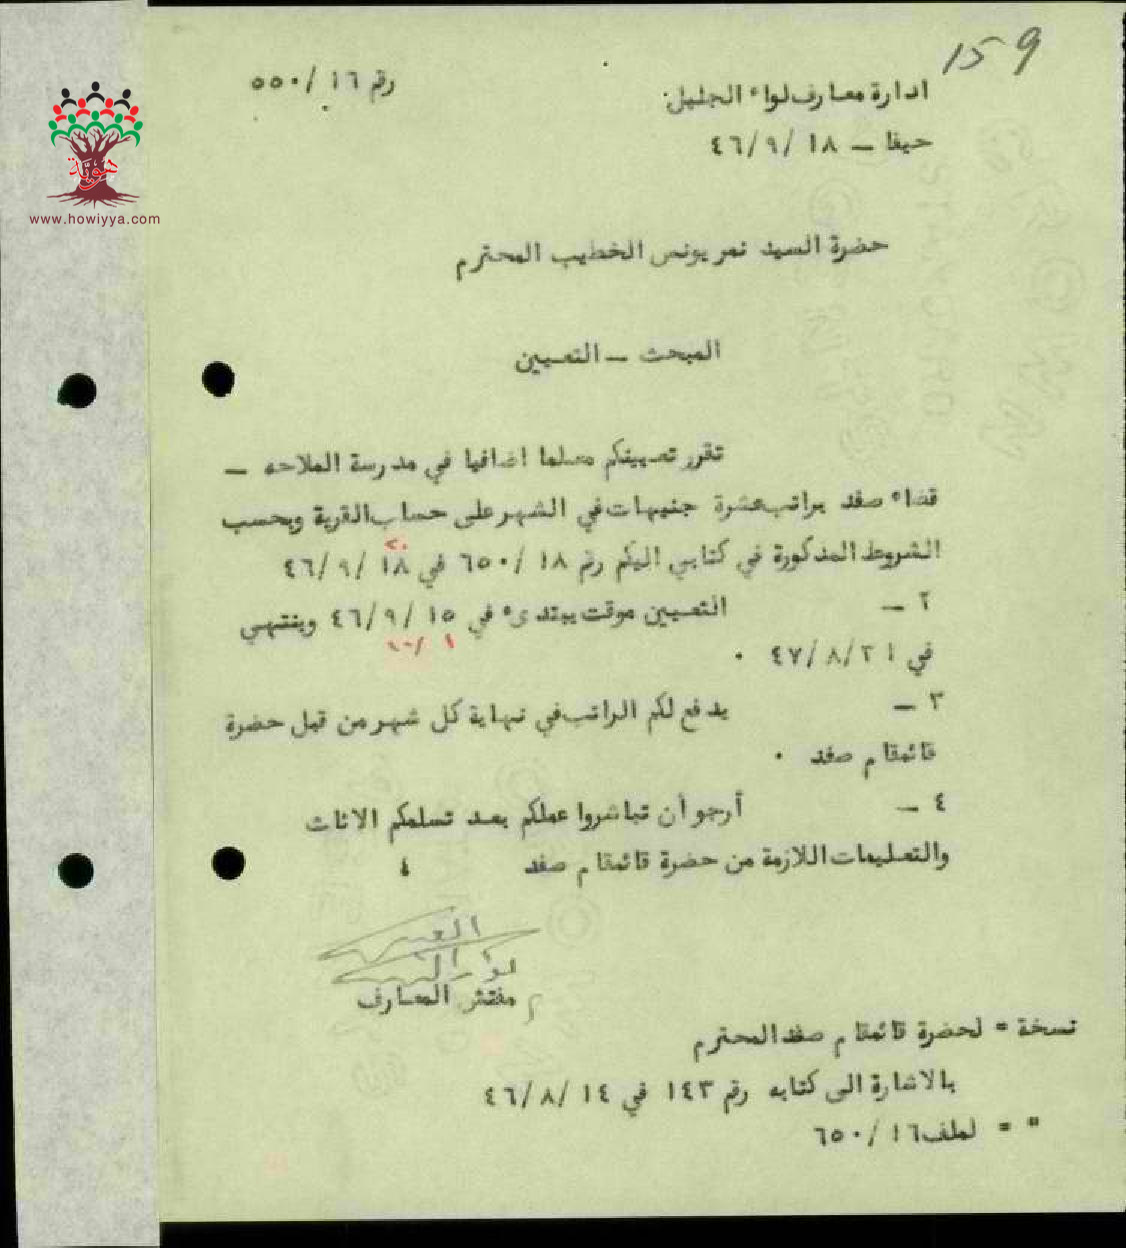 159
ادارة معارف لواء الجليل
رقم ١٦ / ٥٥٠
حيفا – ١٨ /٩ /٤٦
هوية
www.howiyya.com
حضرة السيد نمر يونس الخطيب المحترم
المبحث – التعيين
تقرر تعيينكم معلما اضافيا في مدرسة الملاحه –
قضاء صفد براتب عشرة جنيهات في الشهر على حساب القرية وبحسب
الشروط المذكورة في كتابي اليكم رقم ١٨ / ٦٥٠ في ١٨ /٩ /٤٦
٢٠
٢ – التعيين موقت يبتدىء في ١٥ /٩ /٤٦ وينتهي
١ /
في ٣١ /٨ /٤٧ .
٣ – يدفع لكم الراتب في نهاية كل شهر من قبل حضرة
قائمقام صفد .
٤ – أرجو أن تباشروا عملكم بعد تسلمكم الاثاث
والتعليمات اللازمة من حضرة قائمقام صفد
مفتش المعارف
نسخة = لحضرة قائمقام صفد المحترم
بالاشارة الى كتابه رقم ١٤٣ في ١٤ /٨ /٤٦
" = لملف ١٦ / ٦٥٠